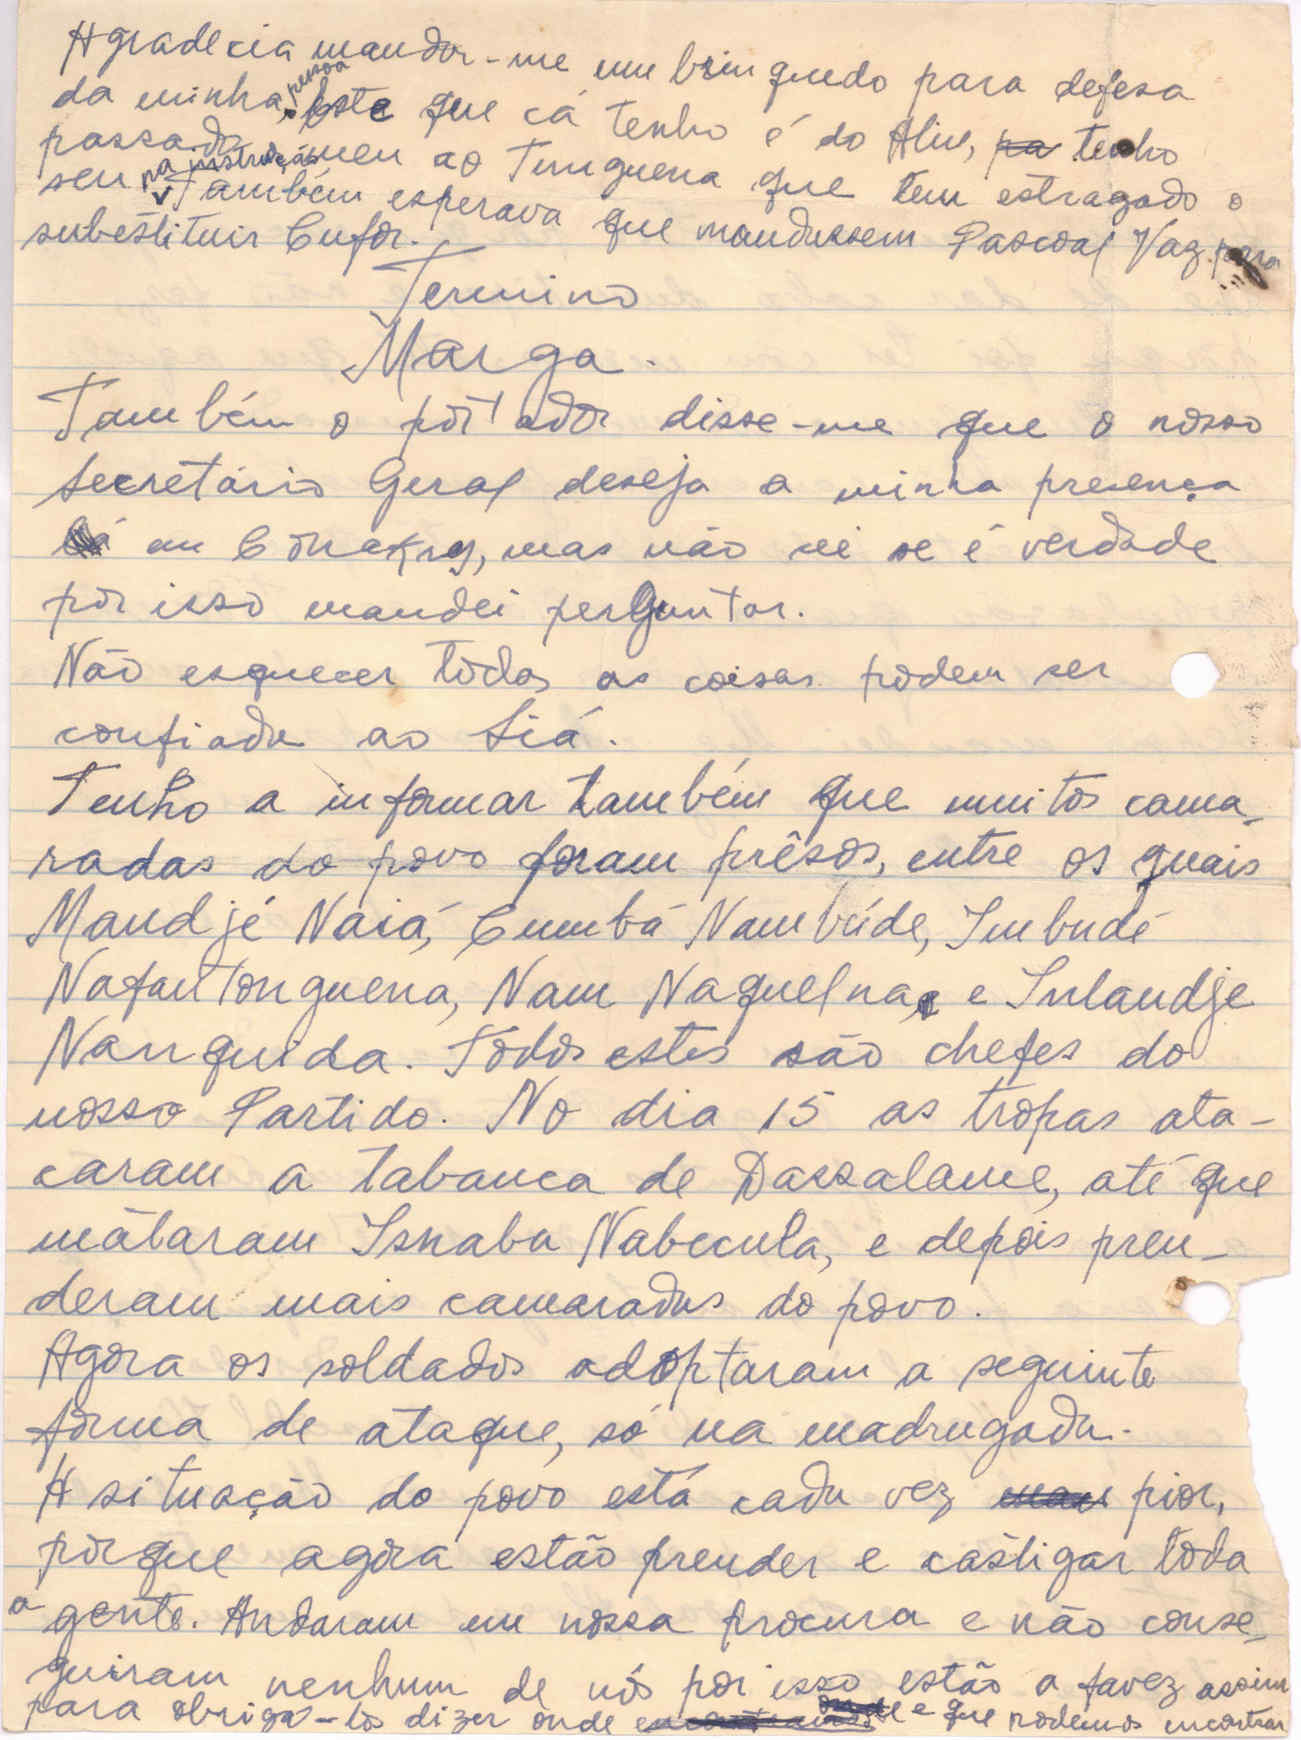 Agradecia mandar-me um brinquedo para defesa
da minha pessoa. Este que cá tenho é do Aliu, tenho
passado o meu ao Tunguena que tem estragado o
seu na instrução. Também esperava que mandassem Pascoal Vaz para
substituir Cufor.
Termino
Marga.
Também o portador disse-me que o nosso
Secretário Geral deseja a minha presença
em Conakry, mas não sei se é verdade
por isso mandei perguntar.
Não esquecer todas as coisas podem ser
confiada ao Siá.
Tenho a informar também que muitos cama-
radas do povo foram prêsos, entre os quais
Mandjé Naiá, Cumbá Nambúde, Imbudé
Nafantonguena, Nam Naquelna, e Inlandje
Nanquida. Todos estes são chefes do
nosso Partido. No dia 15 as tropas ata-
caram a tabanca de Dassalame, até que
mataram Isnaba Nabecula, e depois pren-
deram mais camaradas do povo.
Agora os soldados adoptaram a seguinte
forma de ataque, só na madrugada.
A situação do povo está cada vez pior,
porque agora estão prender e castigar toda
a gente. Andaram em nossa procura e não conse-
guiram nenhum de nós por isso estão a favez assim
para obriga-los dizer onde e que podemos encontrar